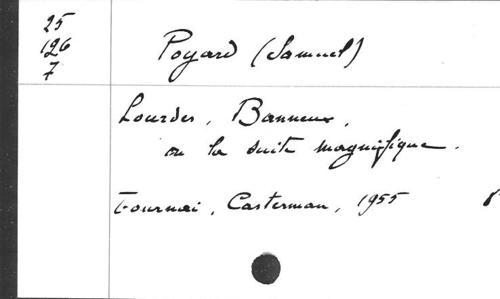 25
126
7
Poyard (Samuel)
Lourdes, Banneux,
ou la suite magnifique.
Tournai, Casterman, 1955